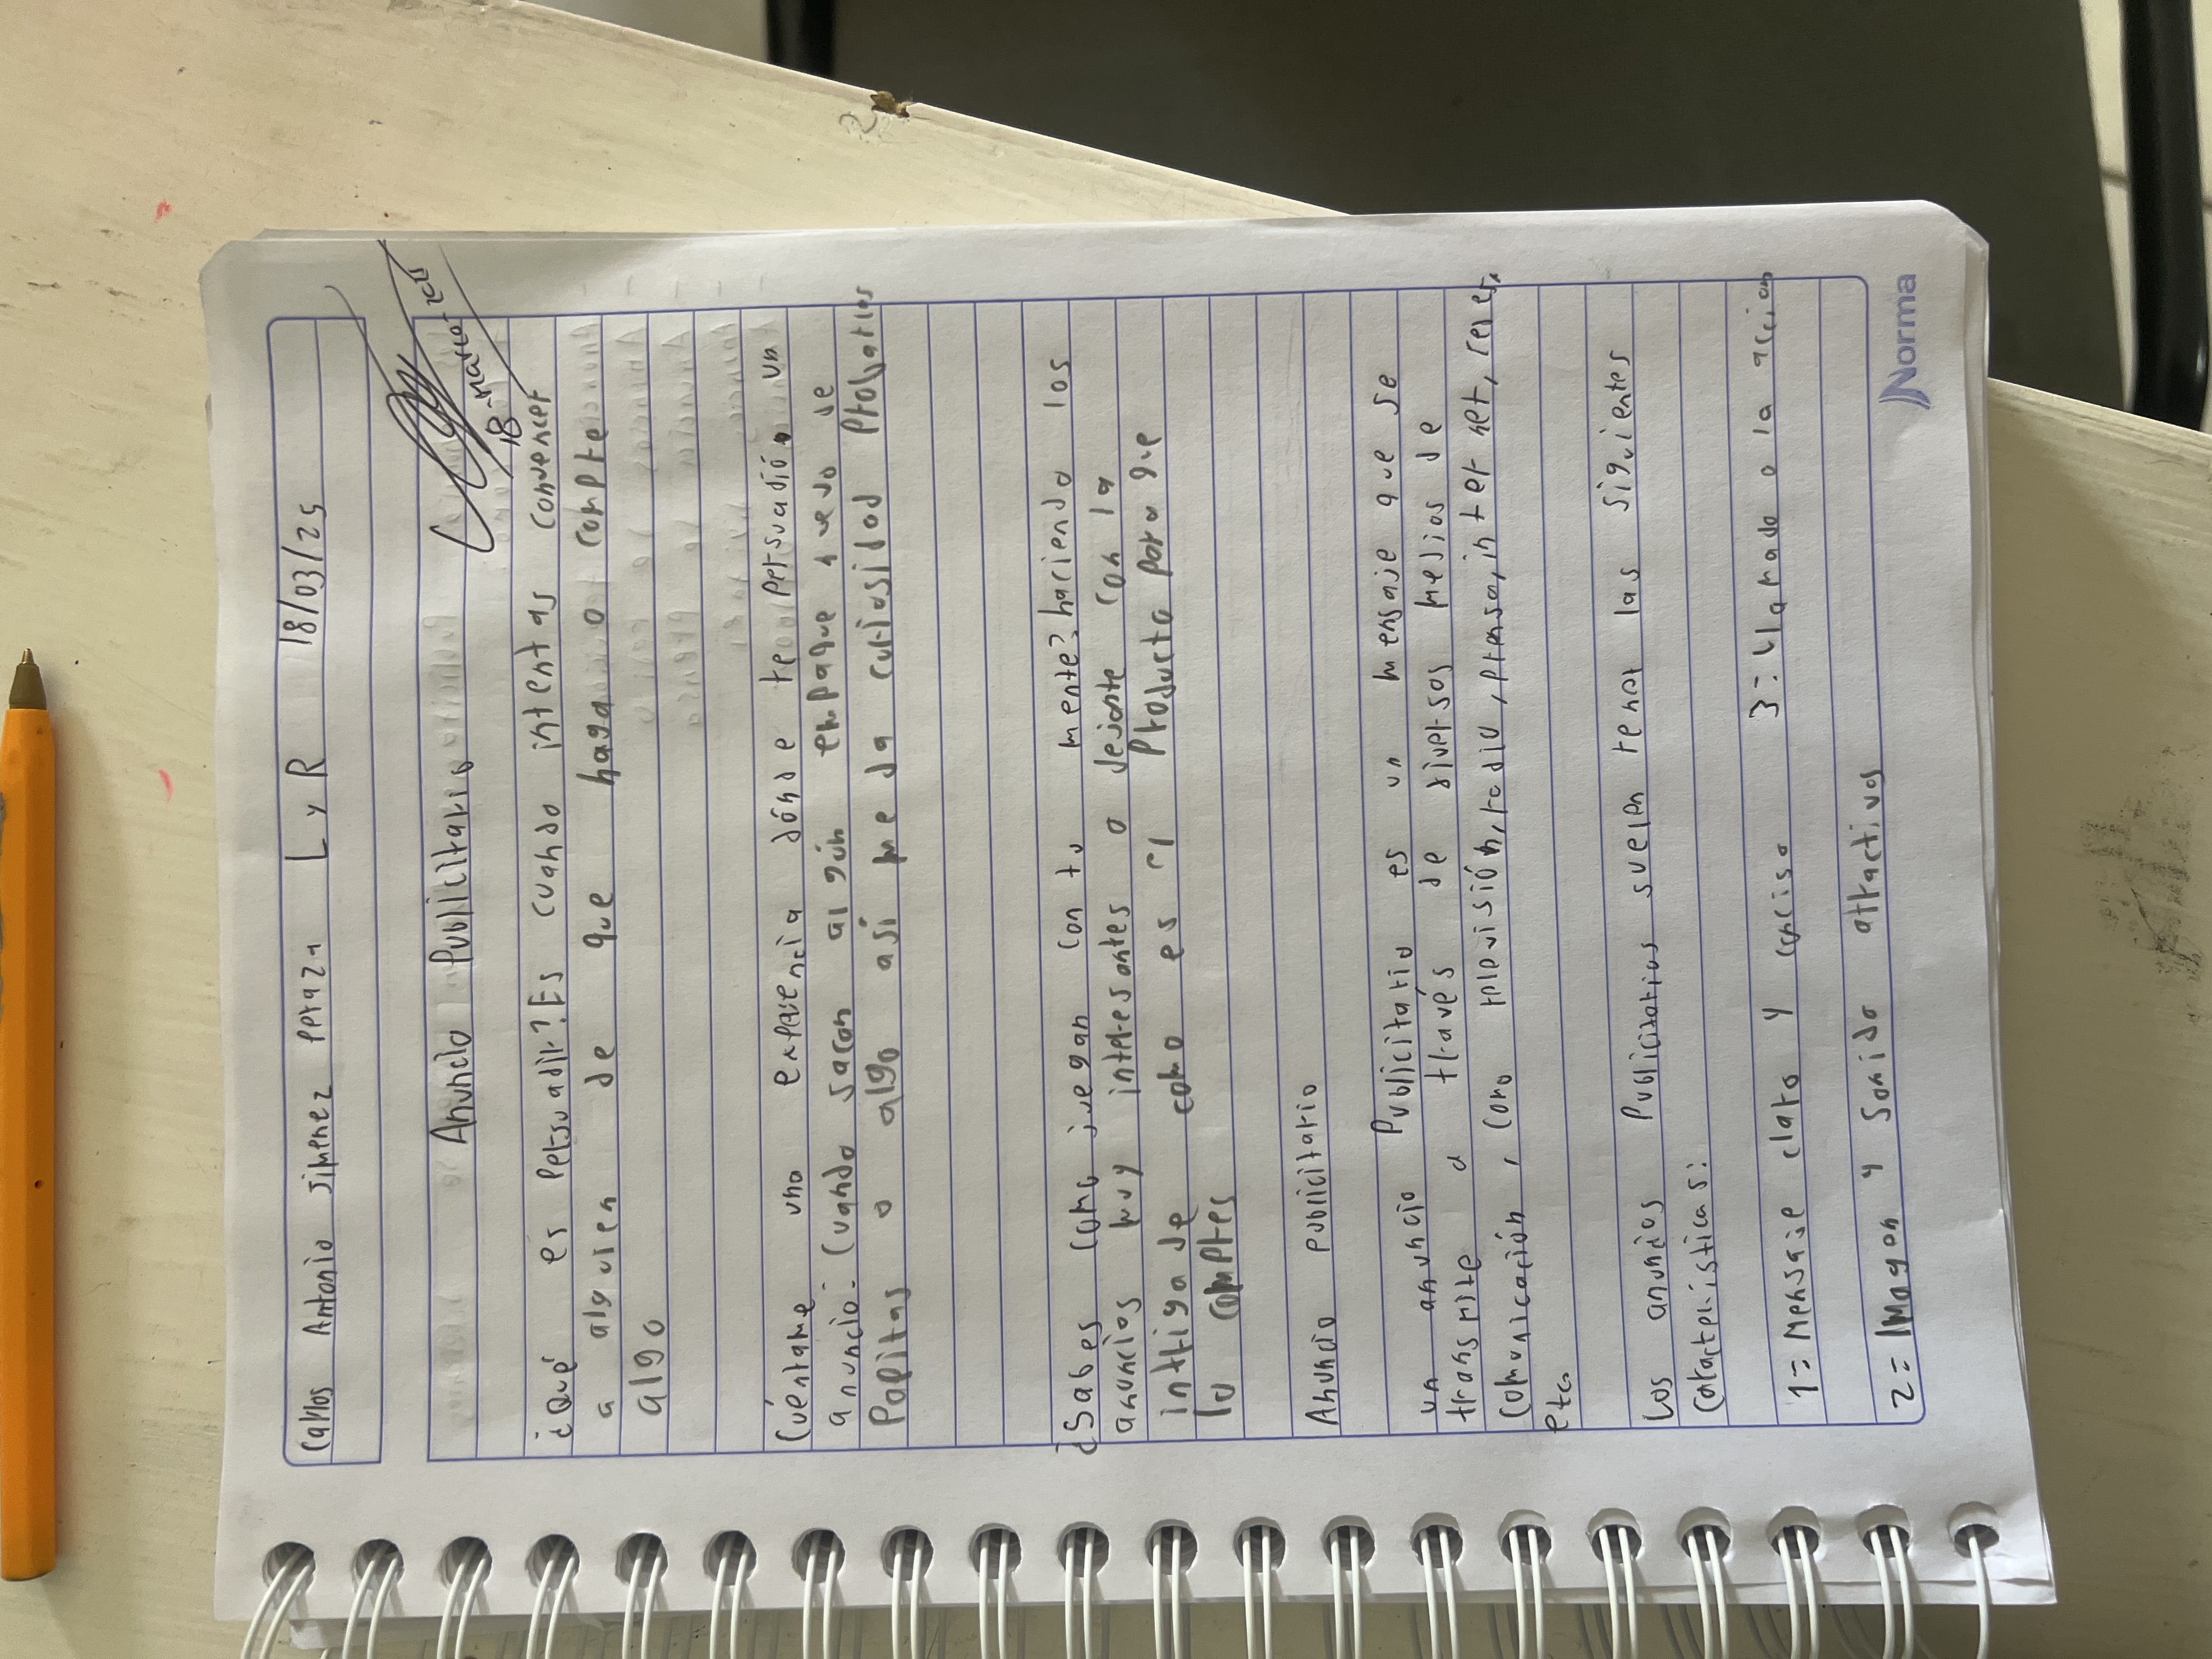 Carlos Antonio Jimenez Peraza L y R 18/03/25
Anuncio Publicitario
18-Marzo-2025
¿Qué es Persuadir? Es cuando intentas convencer
a alguien de que haga o compre
algo
Cuéntame una experencia dónde te persuadió un
anuncio: Cuando sacan algún empaque nuevo de
Papitas o algo asi me da curiosidad Probarlos
¿Sabes como juegan con tu mente? haciendo los
anuncios muy interesantes o dejarte con la
intriga de como es el Producto para que
lo compres
Anuncio publicitario
un anuncio Publicitario es un mensaje que se
transmite a través de diversos medios de
Comunicación, Como televisión, radio, prensa, internet, redes,
etc.
Los anuncios Publicitarios suelen tener las siguientes
Características:
1= Mensaje claro y conciso 3= Llamado a la acción
2= Imagen y Sonido atractivos
Norma